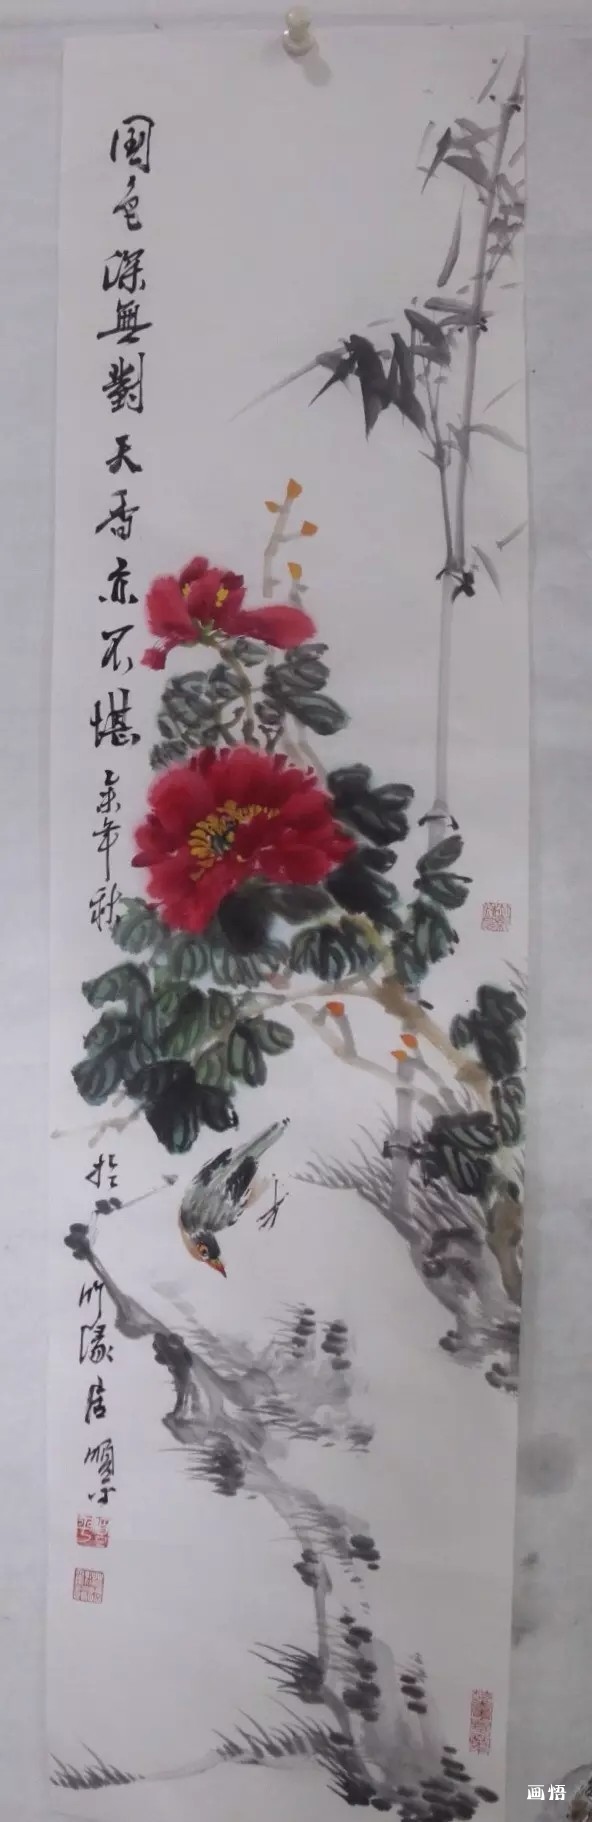 國色深無對天香亦不堪
年秋
於
竹
居順平
画悟